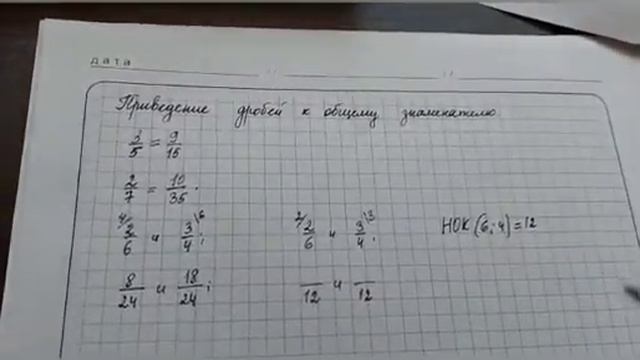 дата
Приведение дробей к общему знаменателю
3/5 = 9/15
2/7 = 10/35.
4/ 2/6 и 3/4 \6; 2/ 2/6 и 3/4 \3; НОК (6; 4) = 12
8/24 и 18/24; /12 и /12